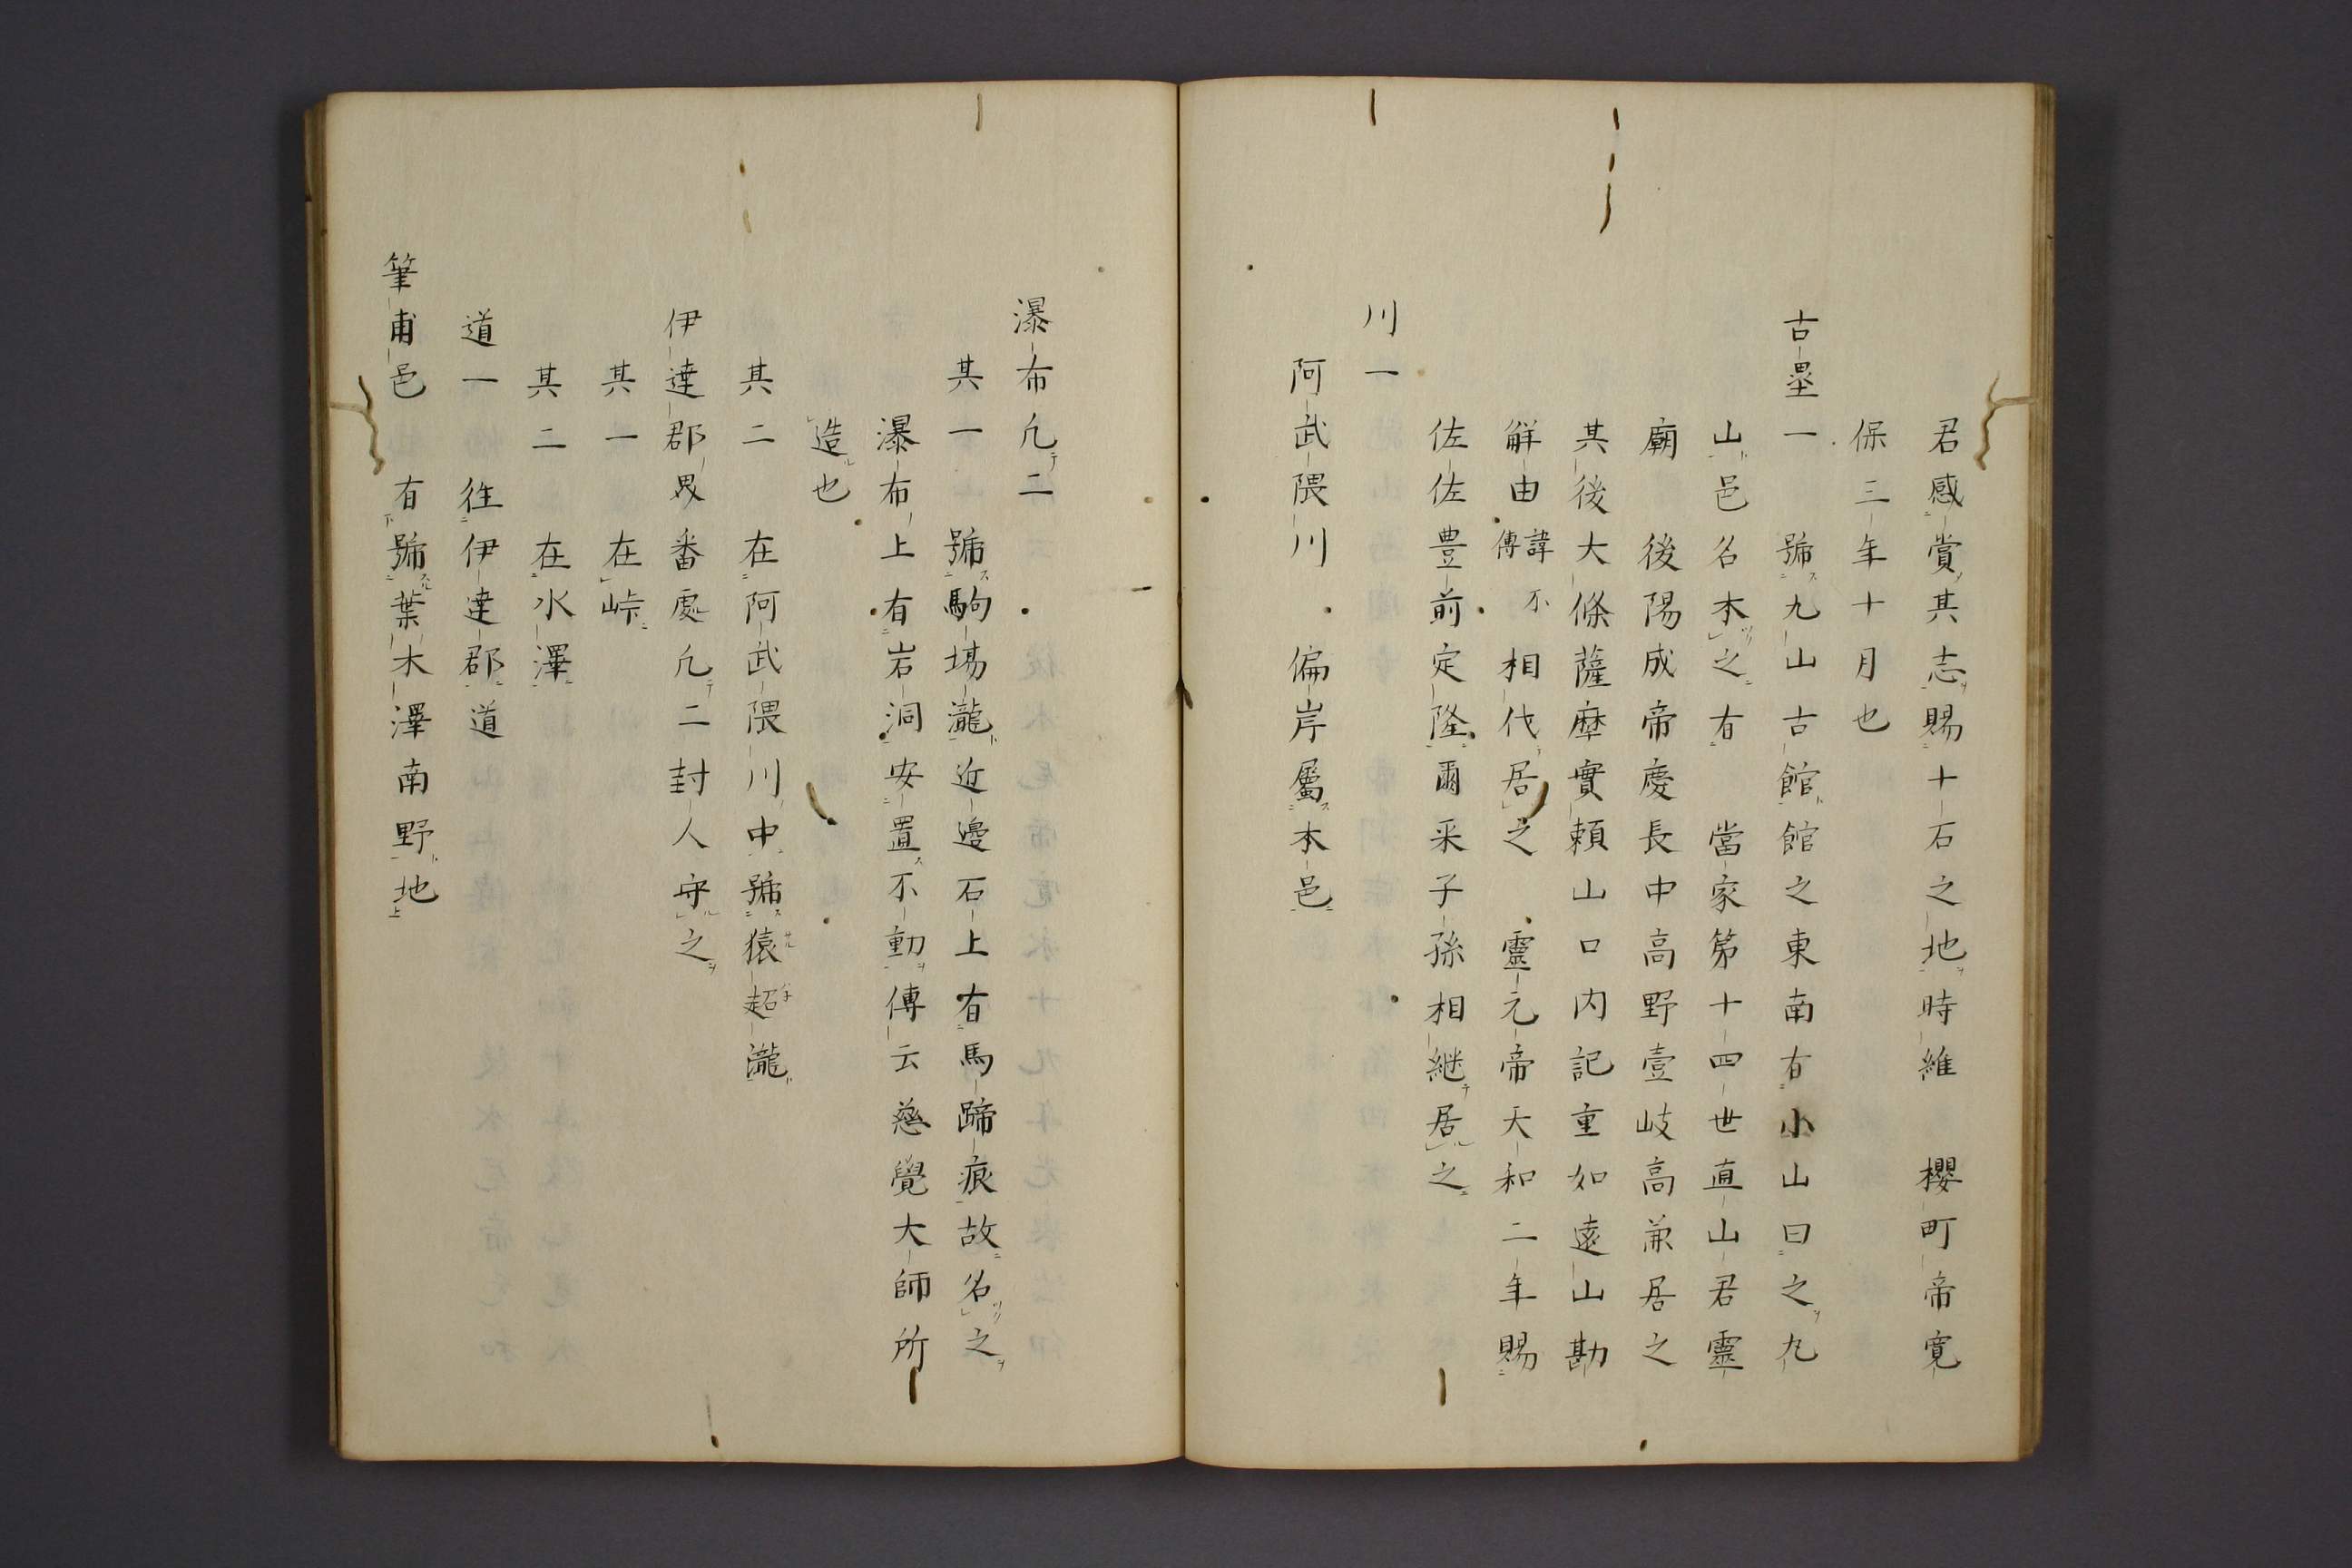 君感賞其志賜十石之地時維 櫻町帝寛
保三年十月也
古壘一 號九山古館館之東南有小山曰之九
山邑名本之有 當家第十四世直山君靈
廟 後陽成帝慶長中高野壹岐高兼居之
其後大條薩摩實頼山口内記重如遠山勘
解由諱不傳相代居之 靈元帝天和二年賜
佐佐豊前定隆爾来子孫相継居之
川一
阿武隈川 偏岸屬本邑
瀑布凢二
其一 號駒場瀧近邊石上有馬蹄痕故名之
瀑布上有岩洞安置不動傳云慈覺大師所
造也
其二 在阿武隈川中號猿超瀧
伊達郡界番處凢二封人守之
其一 在峠
其二 在水澤
道一 徃伊達郡道
筆甫邑 有號葉木澤南野地